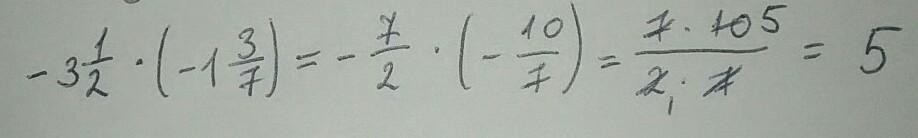 -3 1/2 · (-1 3/7) = -7/2 · (-10/7) = 7 · 10 5 / 2 1 · 7 = 5